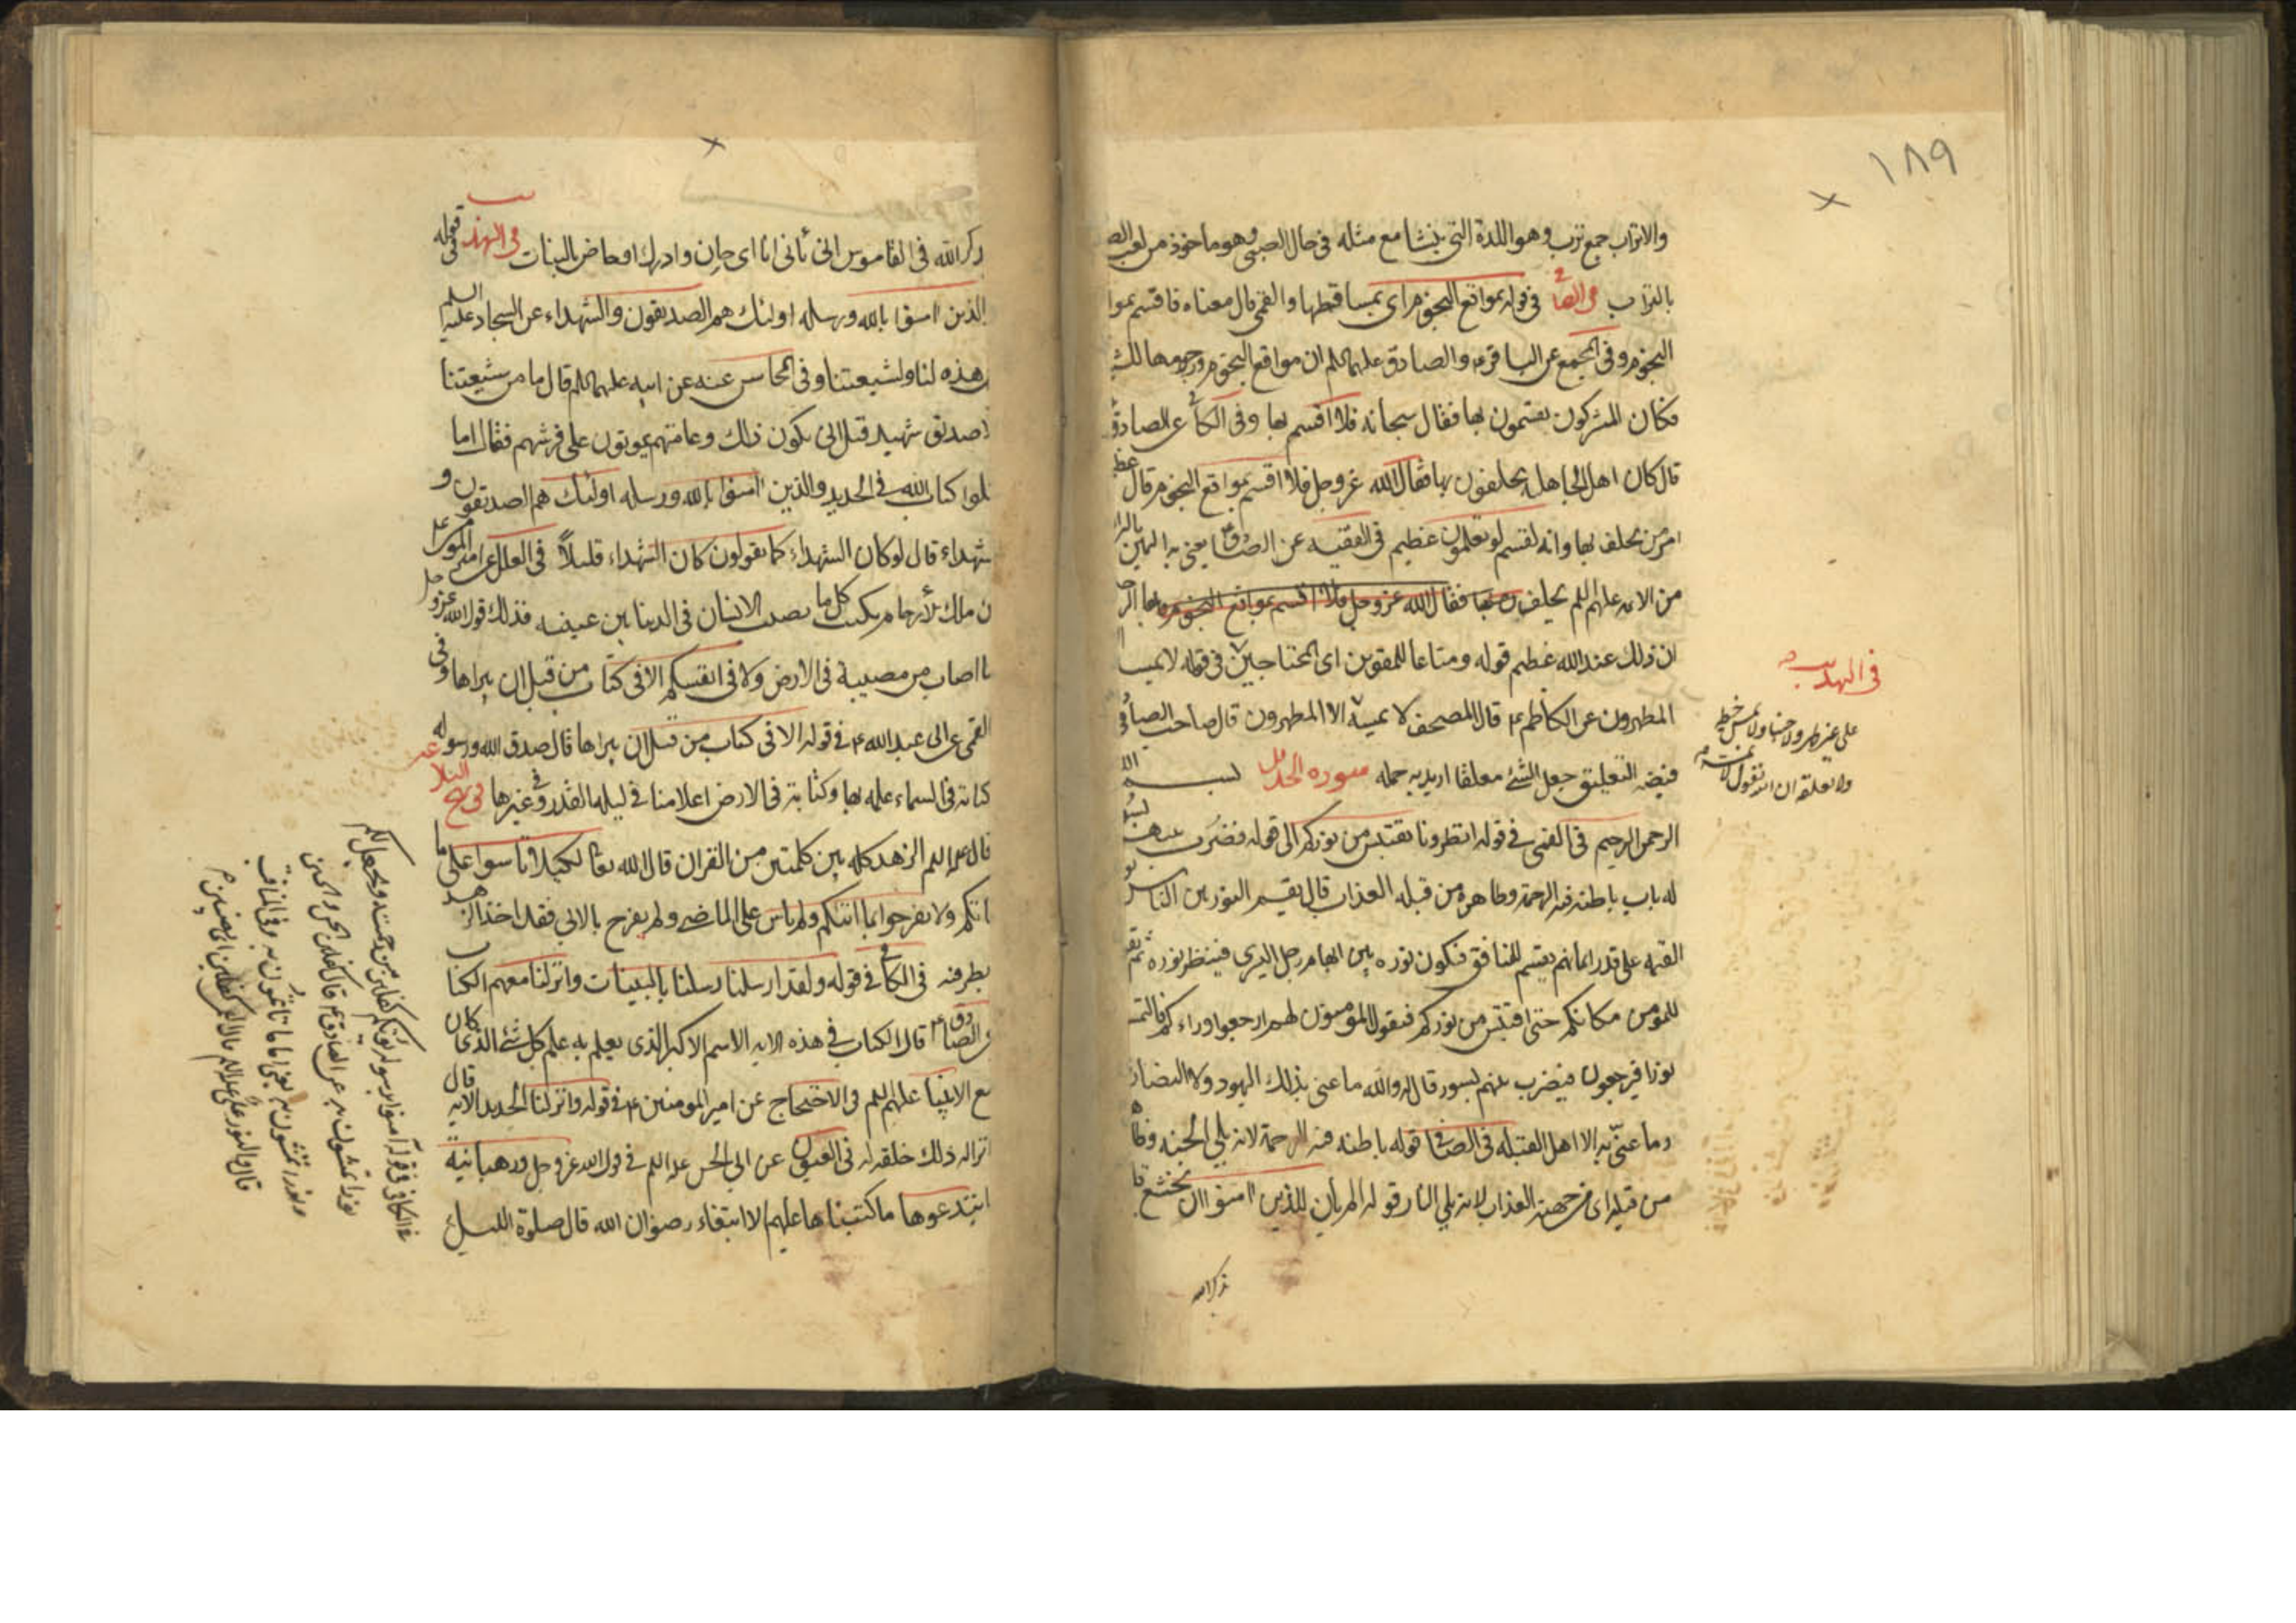 ١٨٩
والاتراب جمع ترب وهو اللدة التي ينشا مع مثله في حال الصبي وهو ماخوذ من لعب الص
بالتراب في الصا في قوله بمواقع النجوم اي بمساقطها والقمي قال معناه فاقسم بموا
النجوم وفي المجمع عن الباقر ع والصادق عليهما السلم ان مواقع النجوم رجومها للش
فكان المشركون يقسمون بها فقال سبحانه فلا اقسم بها وفي الكا عن الصادق
قال كان اهل الجاهلية يحلفون بها فقال الله عز وجل فلا اقسم بمواقع النجوم قال عظم
امر من يحلف بها وانه لقسم لو تعلمون عظيم في الفقيه عن الصا ع يعني به اليمين بالبرا
من الائمة عليهم السلم يحلف بها فقال الله عز وجل فلا اقسم بمواقع النجوم
ان ذلك عند الله عظيم قوله ومتاعا للمقوين اي المحتاجين في قوله لا يمسه ا
المطهرون عن الكاظم ع قال المصحف لا يمسه الا المطهرون قال صاحب الصافي
فيض التعليق جعل الشئ معلقا اريد به حمله سورة الحديد بسم الله
الرحمن الرحيم في القمي في قوله انظرونا نقتبس من نوركم الى قوله فضرب بينهم بسور
له باب باطنه فيه الرحمة وظاهره من قبله العذاب قال يقسم النور بين الناس يو
القيمة على قدر ايمانهم يقسم للمنافق فيكون نوره بين ابهام رجل اليسرى فينظر نوره ثم يق
للمؤمن مكانكم حتى اقتبس من نوركم فيقول المؤمنون لهم ارجعوا وراءكم فالتمسوا
نورا فيرجعون فيضرب بينهم بسور قال والله ما عنى بذلك اليهود ولا النصار
وما عنى به الا اهل القبلة في الصا قوله باطنه فيه الرحمة لانه يلي الجنة وظا
من قبله اي من جهته العذاب لانه يلي النار قوله الم يان للذين امنوا ان تخشع قا
ذكر الله
في التهذيب
على غير طهر ولا جنبا ولا تمس خيطه
ولا تعلقه ان الله يقول لا يمسه
ذكر الله في القاموس انى يأنى انا اي حان وادرك او خاص بالنبات في التهذيب قوله
الذين امنوا بالله ورسله اولئك هم الصديقون والشهداء عن السجاد عليه السلم
هذه لنا ولشيعتنا وفي المحاسن عنه عن ابيه عليهما السلم قال ما من شيعتنا
الا صديق شهيد قيل انى يكون ذلك وعامتهم يموتون على فرشهم فقال اما
تلوا كتاب الله في الحديد والذين امنوا بالله ورسله اولئك هم الصديقون و
شهداء قال لو كان الشهداء كما يقولون كان الشهداء قليلاً في العلل عن امير المؤ
ن ملك الارحام يكتب كل ما يصيب الانسان في الدنيا بين عينيه فذلك قول الله عز وجل
ما اصاب من مصيبة في الارض ولا في انفسكم الا في كتاب من قبل ان نبراها وفي
القمي عن ابي عبد الله ع في قوله الا في كتاب من قبل ان نبراها قال صدق الله ورسوله
كتابه في السماء علمه بها وكتابته في الارض اعلامنا في ليلة القدر وفي غيرها في نهج البلا
قال عليه السلم الزهد كله بين كلمتين من القران قال الله تعالى لكيلا تاسوا على ما
فاتكم ولا تفرحوا بما اتيكم ولم ياس على الماضي ولم يفرح بالاتي فقد اخذ الزهد
بطرفيه في الكا في قوله ولقد ارسلنا رسلنا بالبينات وانزلنا معهم الكتاب
عن الصادق ع قال الكتاب في هذه الاية الاسم الاكبر الذي يعلم به علم كل شئ الذي كان
مع الانبياء عليهم السلم وفي الاحتجاج عن امير المؤمنين ع في قوله وانزلنا الحديد الاية قال
انزاله ذلك خلقه له في العيون عن ابي الحسن عليه السلم في قول الله عز وجل ورهبانية
ابتدعوها ما كتبناها عليهم الا ابتغاء رضوان الله قال صلوة الليل
في الكافي في قوله آمنوا برسوله يؤتكم كفلين من رحمته ويجعل لكم
نورا تمشون به عن الصادق ع قال كفلين الحسن والحسين
ونورا تمشون به يعني اماما تاتمون به وفي المناقب
قال والنور علي عليه السلم